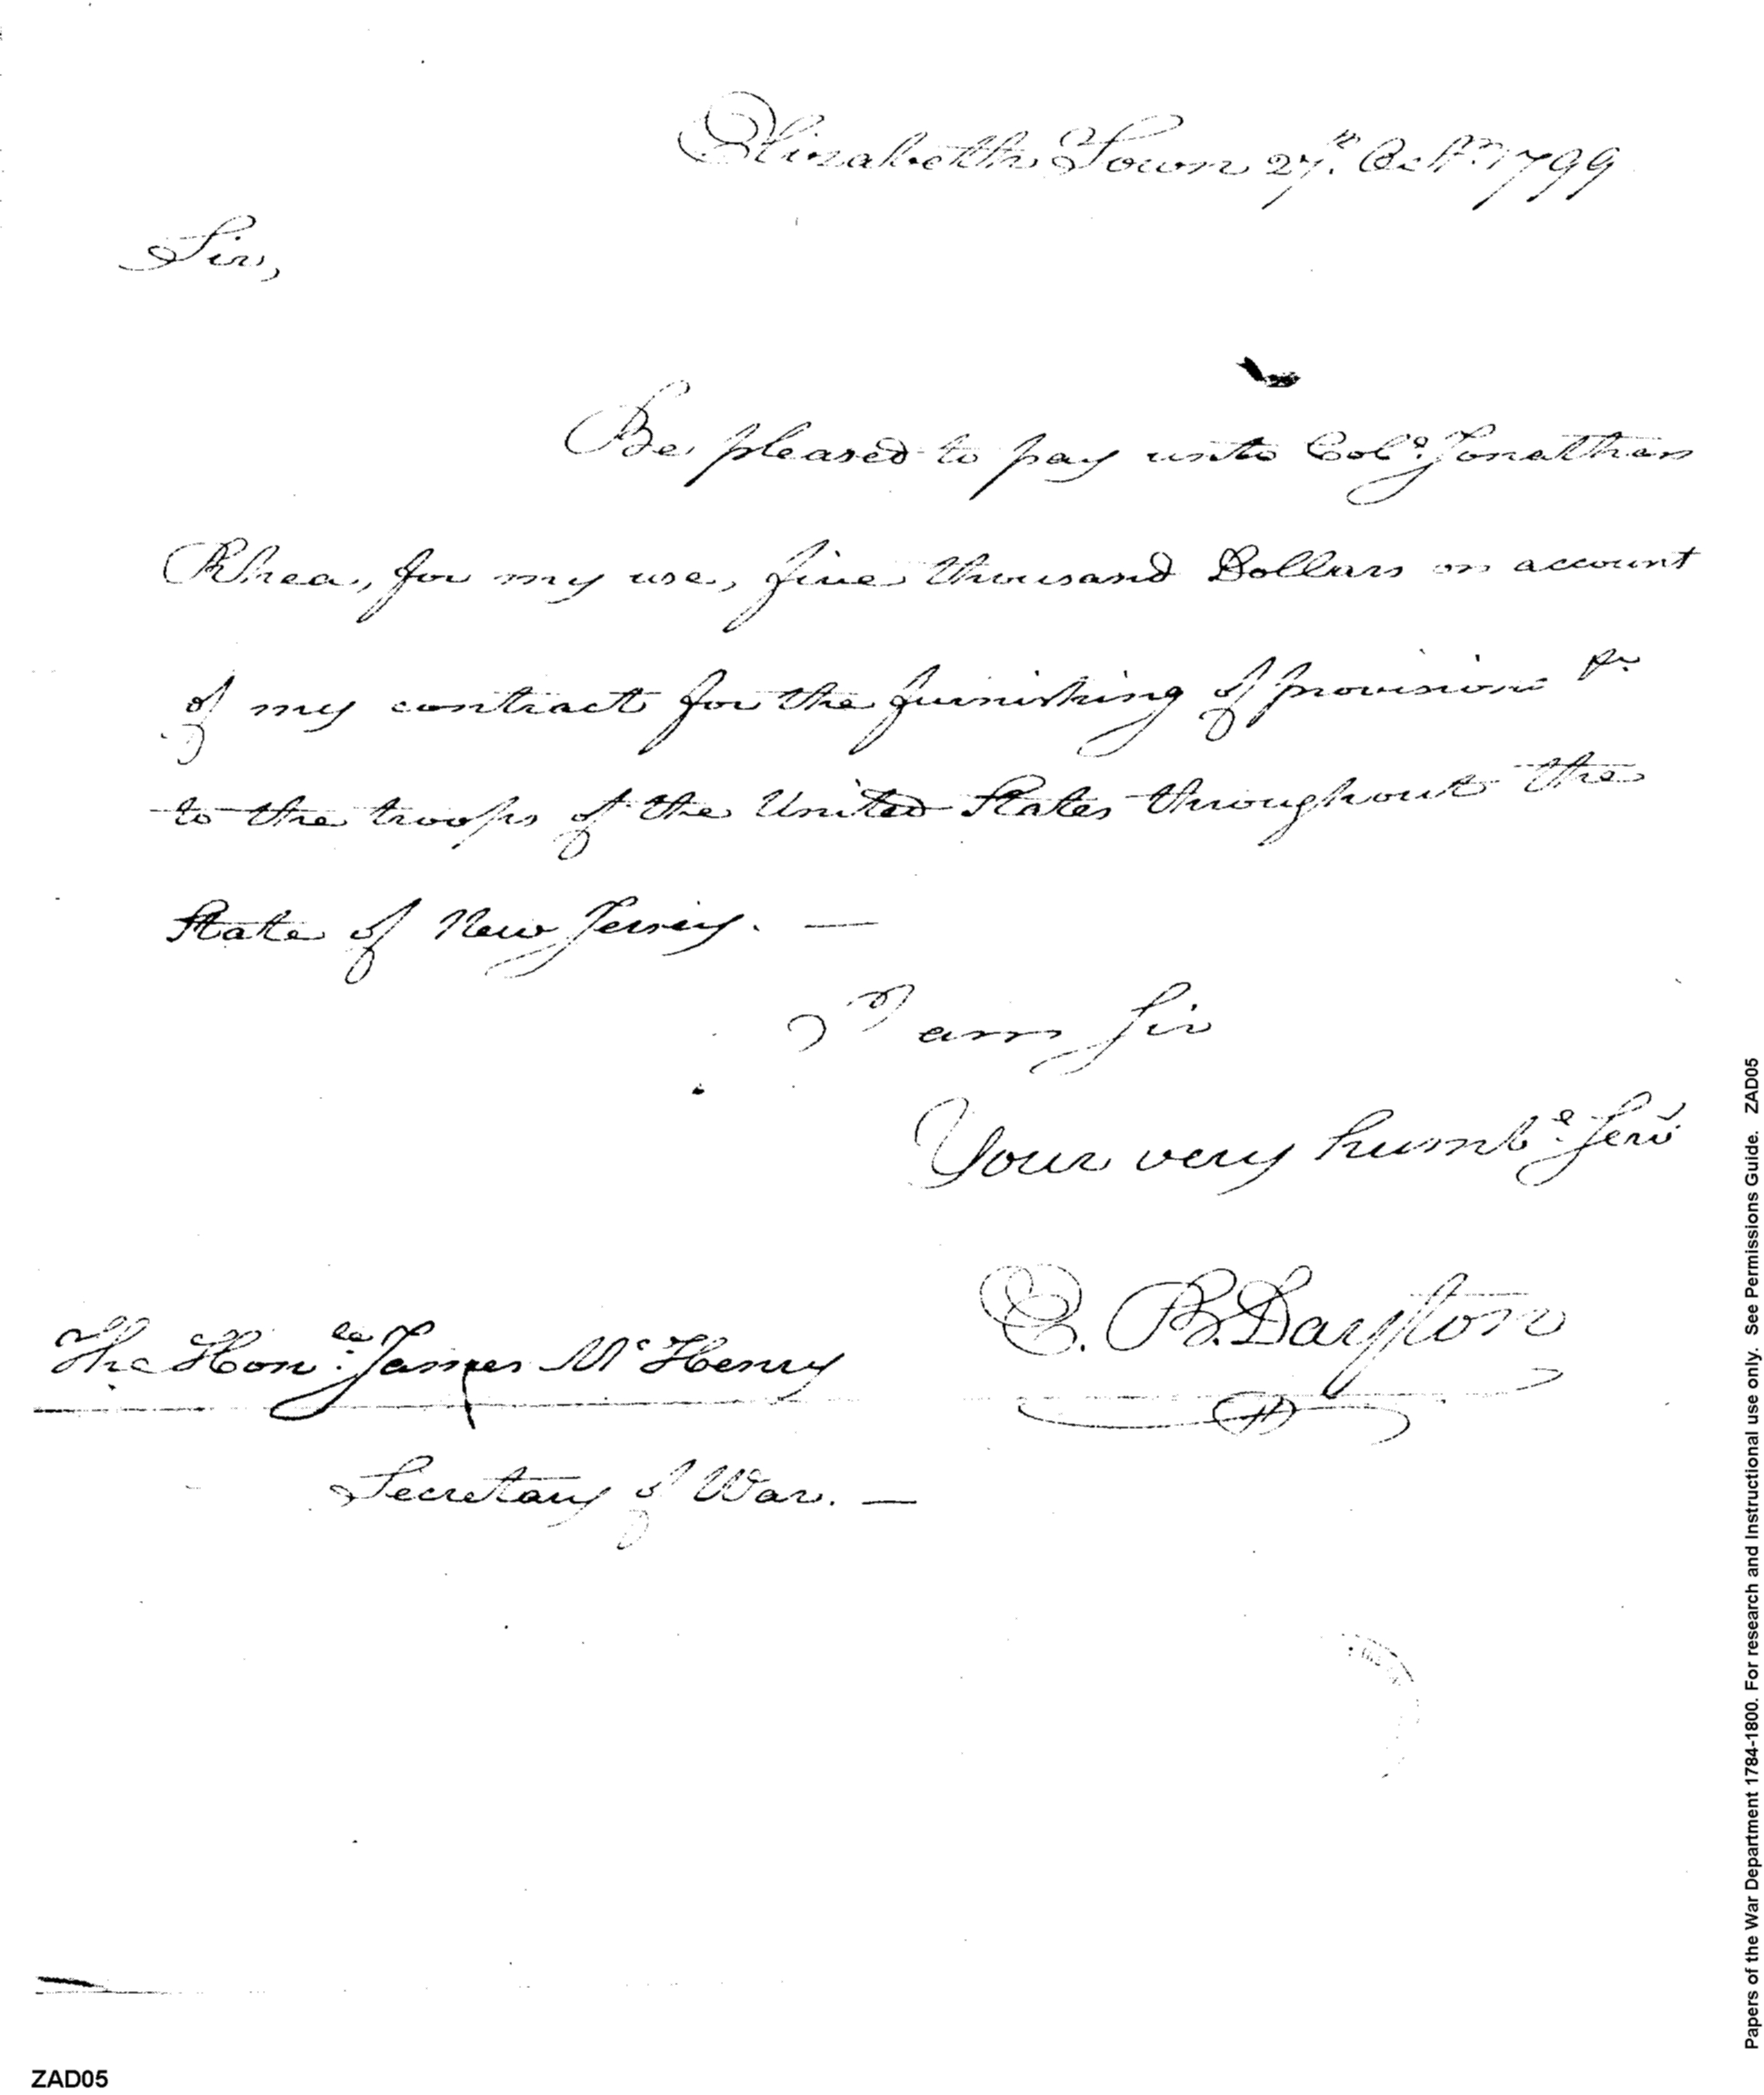 Elizabeth Town 27th. Octr. 1799
Sir,
Be pleased to pay unto Colo. Jonathan
Rhea, for my use, five thousand Dollars on account
of my contract for the furnishing of provisions &c
to the troops of the United States throughout the
State of New Jersey. —
I am Sir
Your very humbe. Servt
E. B. Dayton
The Honble. James McHenry
Secretary of War. —
Papers of the War Department 1784-1800. For research and Instructional use only. See Permissions Guide. ZAD05
ZAD05